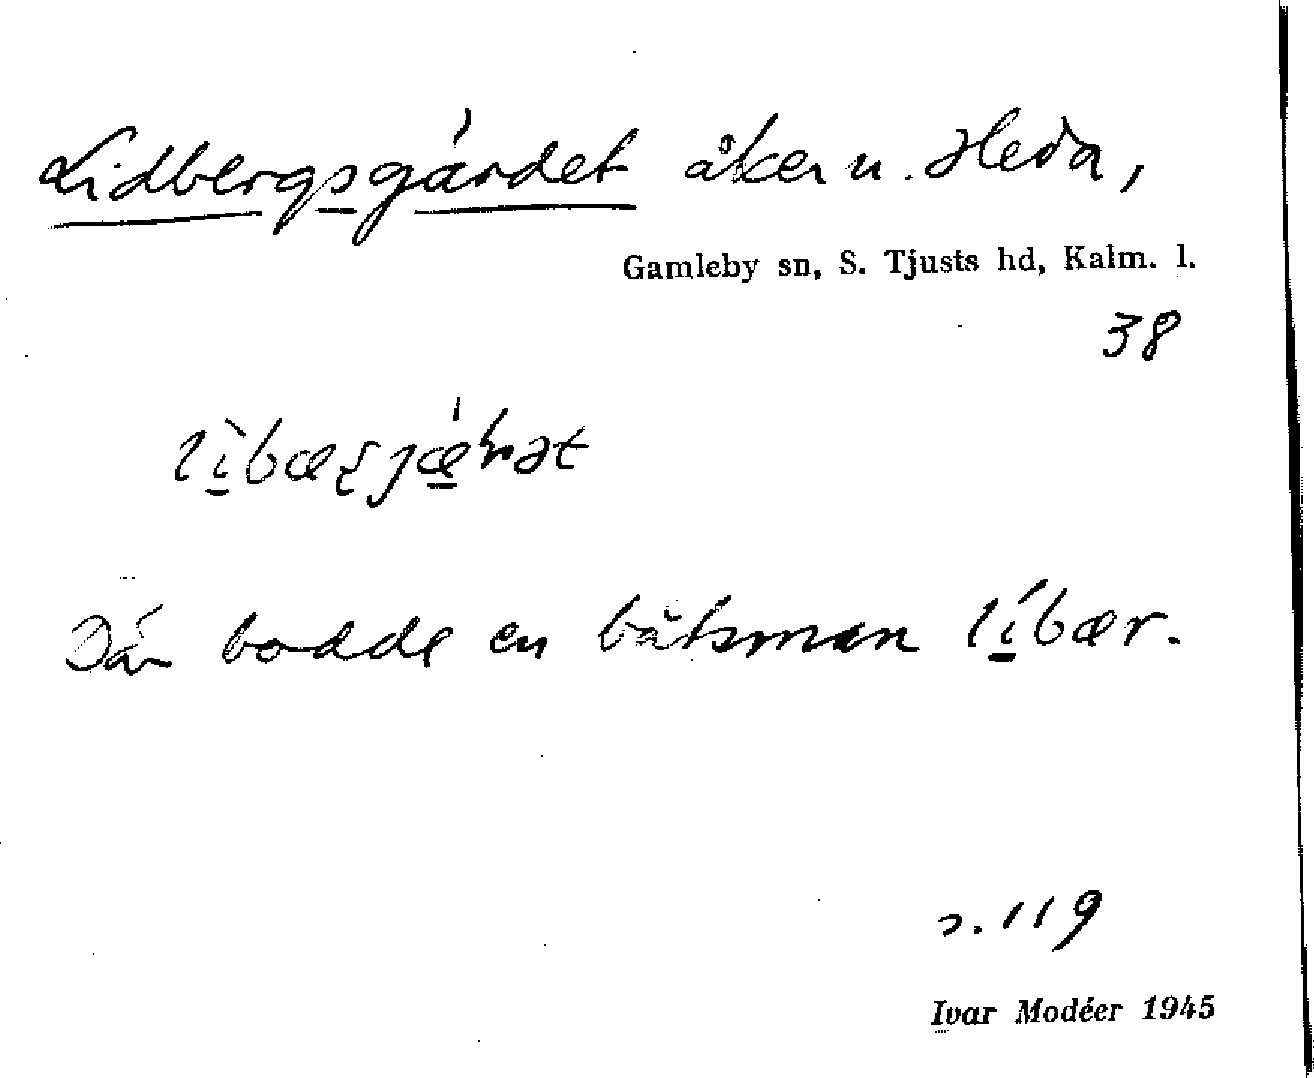 Lidbergsgärdet åker u. Heda,
Gamleby sn, S. Tjusts hd, Kalm. l.
38
Där bodde en båtsman lìbær.
s. 119
Ivar Modéer 1945